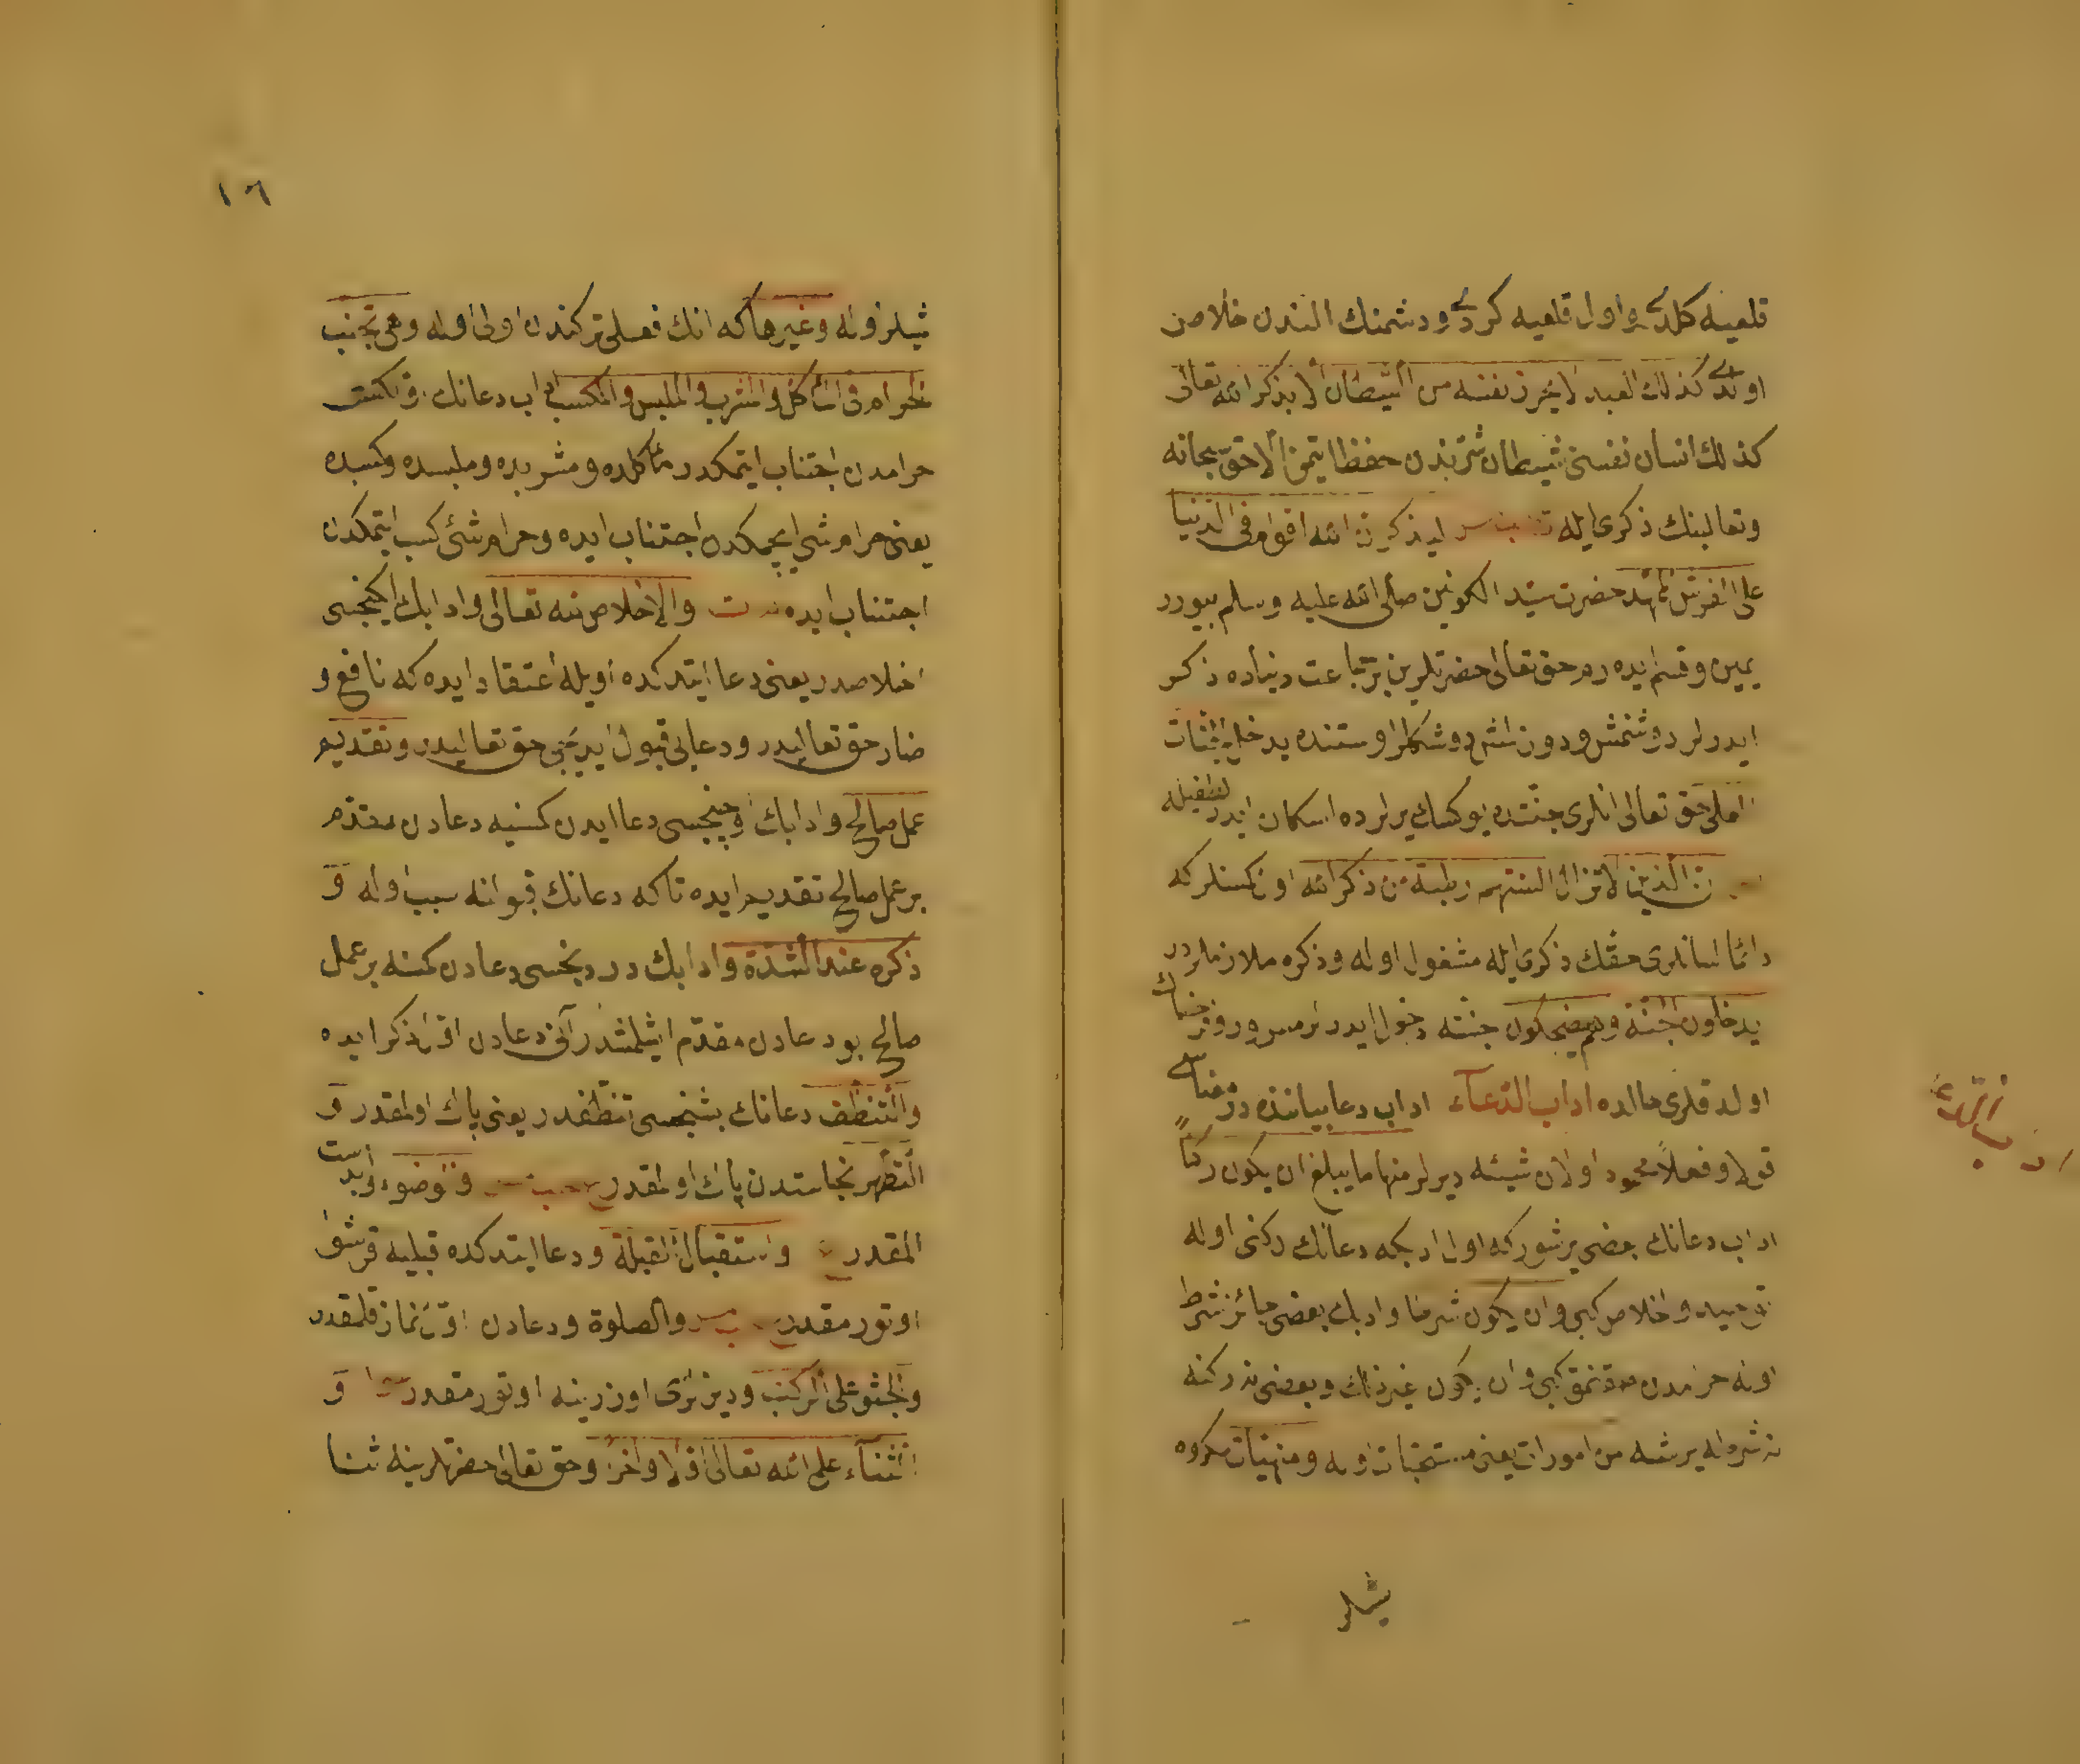 قلعيه كلدى واول قلعيه كردى ودشمنك الندن خلاص
اولدى كذلك العبد لا يحرز نفسه من الشيطان الا بذكر الله تعالى
كذلك انسان نفسنى شيطان شرندن حفظ ايتمز الا حق سبحانه
وتعالينك ذكرى ايله ليذكرن الله اقوام فى الدنيا
على الفرش الممهدة حضرت سيد الكونين صلى الله عليه وسلم بيورر
يمين وقسم ايده رم حق تعالى حضرتلرين بر جماعت دنياده ذكر
ايدرلر دوشنمش ودوزلمش دوشكلر اوستنده يدخلهم الجنات
العلى حق تعالى انلرى جنتده يوكسك يرلرده اسكان ايدر
ان الذين لا تزال السنتهم رطبة من ذكر الله اول كمسنلر كه
دائما لسانلرى حقك ذكرى ايله مشغول اوله وذكره ملازملردر
يدخلون الجنة وهم يضحكون جنته دخول ايدرلر مسرور وفرحناك
اولدقلرى حالده اداب الدعاء اداب دعا بياننده در
قولا وفعلا محمود اولان شيئه ديرلر منها ما يبلغ ان يكون ركنا
اداب دعانك بعضى بر شيدر كه اول ادبكه دعانك ركنى اوله
توحيد واخلاص كبى وان يكون شرطا وادبك بعضى جائز شرط
اوله حرامدن كبى وان يكون غير ذلك وبعضى نه ركنه
نه شرط اوله بر شيه من امورات يعنى مستحبات اوله ومنهيات مكروه
شيلر
اداب الدعاء
١٦
شيلر اوله وغيرها كه انك فعلى تركندن اولى اوله وهى تجنب
الحرام فى المأكل والمشرب والملبس والمكسب اداب دعانك
حرامدن اجتناب ايتمكدر مأكلده ومشربده وملبسده ومكسبده
يعنى حرام شى ايچمكدن اجتناب ايده وحرام شئ كسب ايتمكدن
اجتناب ايده والاخلاص لله تعالى وادابك ايكنجسى
اخلاصدر يعنى دعا ايتدكده اويله اعتقاد ايده كه نافع و
ضار حق تعاليدر ودعايى قبول ايديجى حق تعاليدر وتقديم
عمل صالح وادابك اوچنجسى دعا ايدن كمسنيه دعادن مقدم
بر عمل صالح تقديم ايده تاكه دعانك قبولنه سبب اوله و
ذكره عند الشدة وادابك دردنجسى دعادن كمسنه بر عمل
صالح بو دعادن مقدم ايشلمشدر آنى دعادن اول ذكر ايده
والتنظف دعانك بشنجسى تنظفدر يعنى پاك اولمقدر و
التطهر نجاستدن پاك اولمقدر والوضوء وابدست
المقدر واستقبال القبلة ودعا ايتدكده قبليه قرشو
اوتورمقدر والصلوة ودعادن اول نماز قلمقدر
والجثو على الركب وديزلرى اوزرينه اوتورمقدر و
الثناء على الله تعالى اولا واخرا وحق تعالى حضرتلرينه ثنا